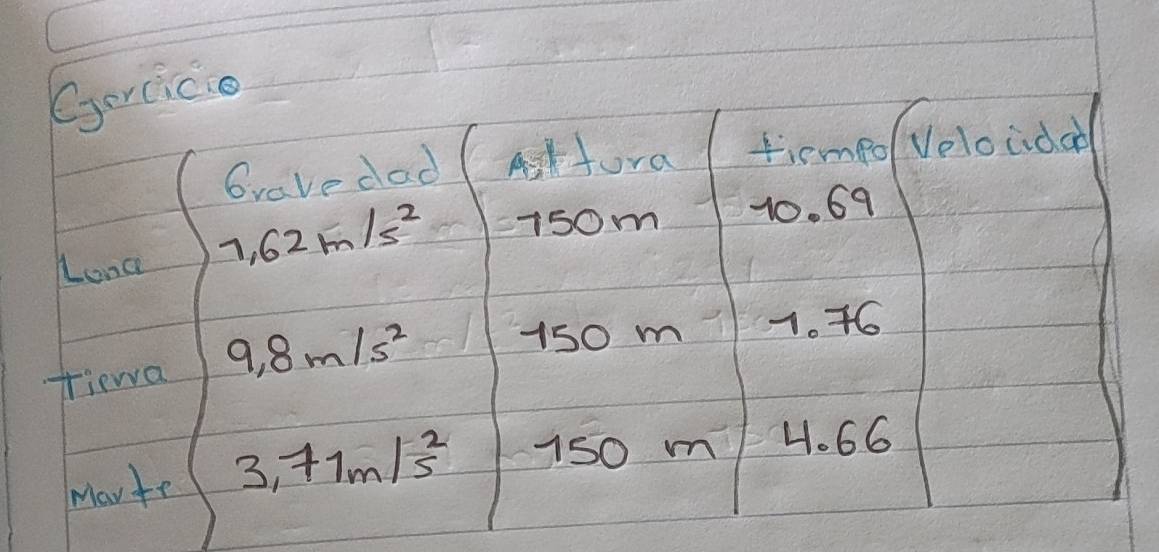 Ejercicio
Gravedad Altura tiempo Velocidad
Luna 1,62 m/s² 150m 10.69
Tierra 9,8 m/s² 150 m 1.76
Marte 3,71m/s² 150 m 4.66